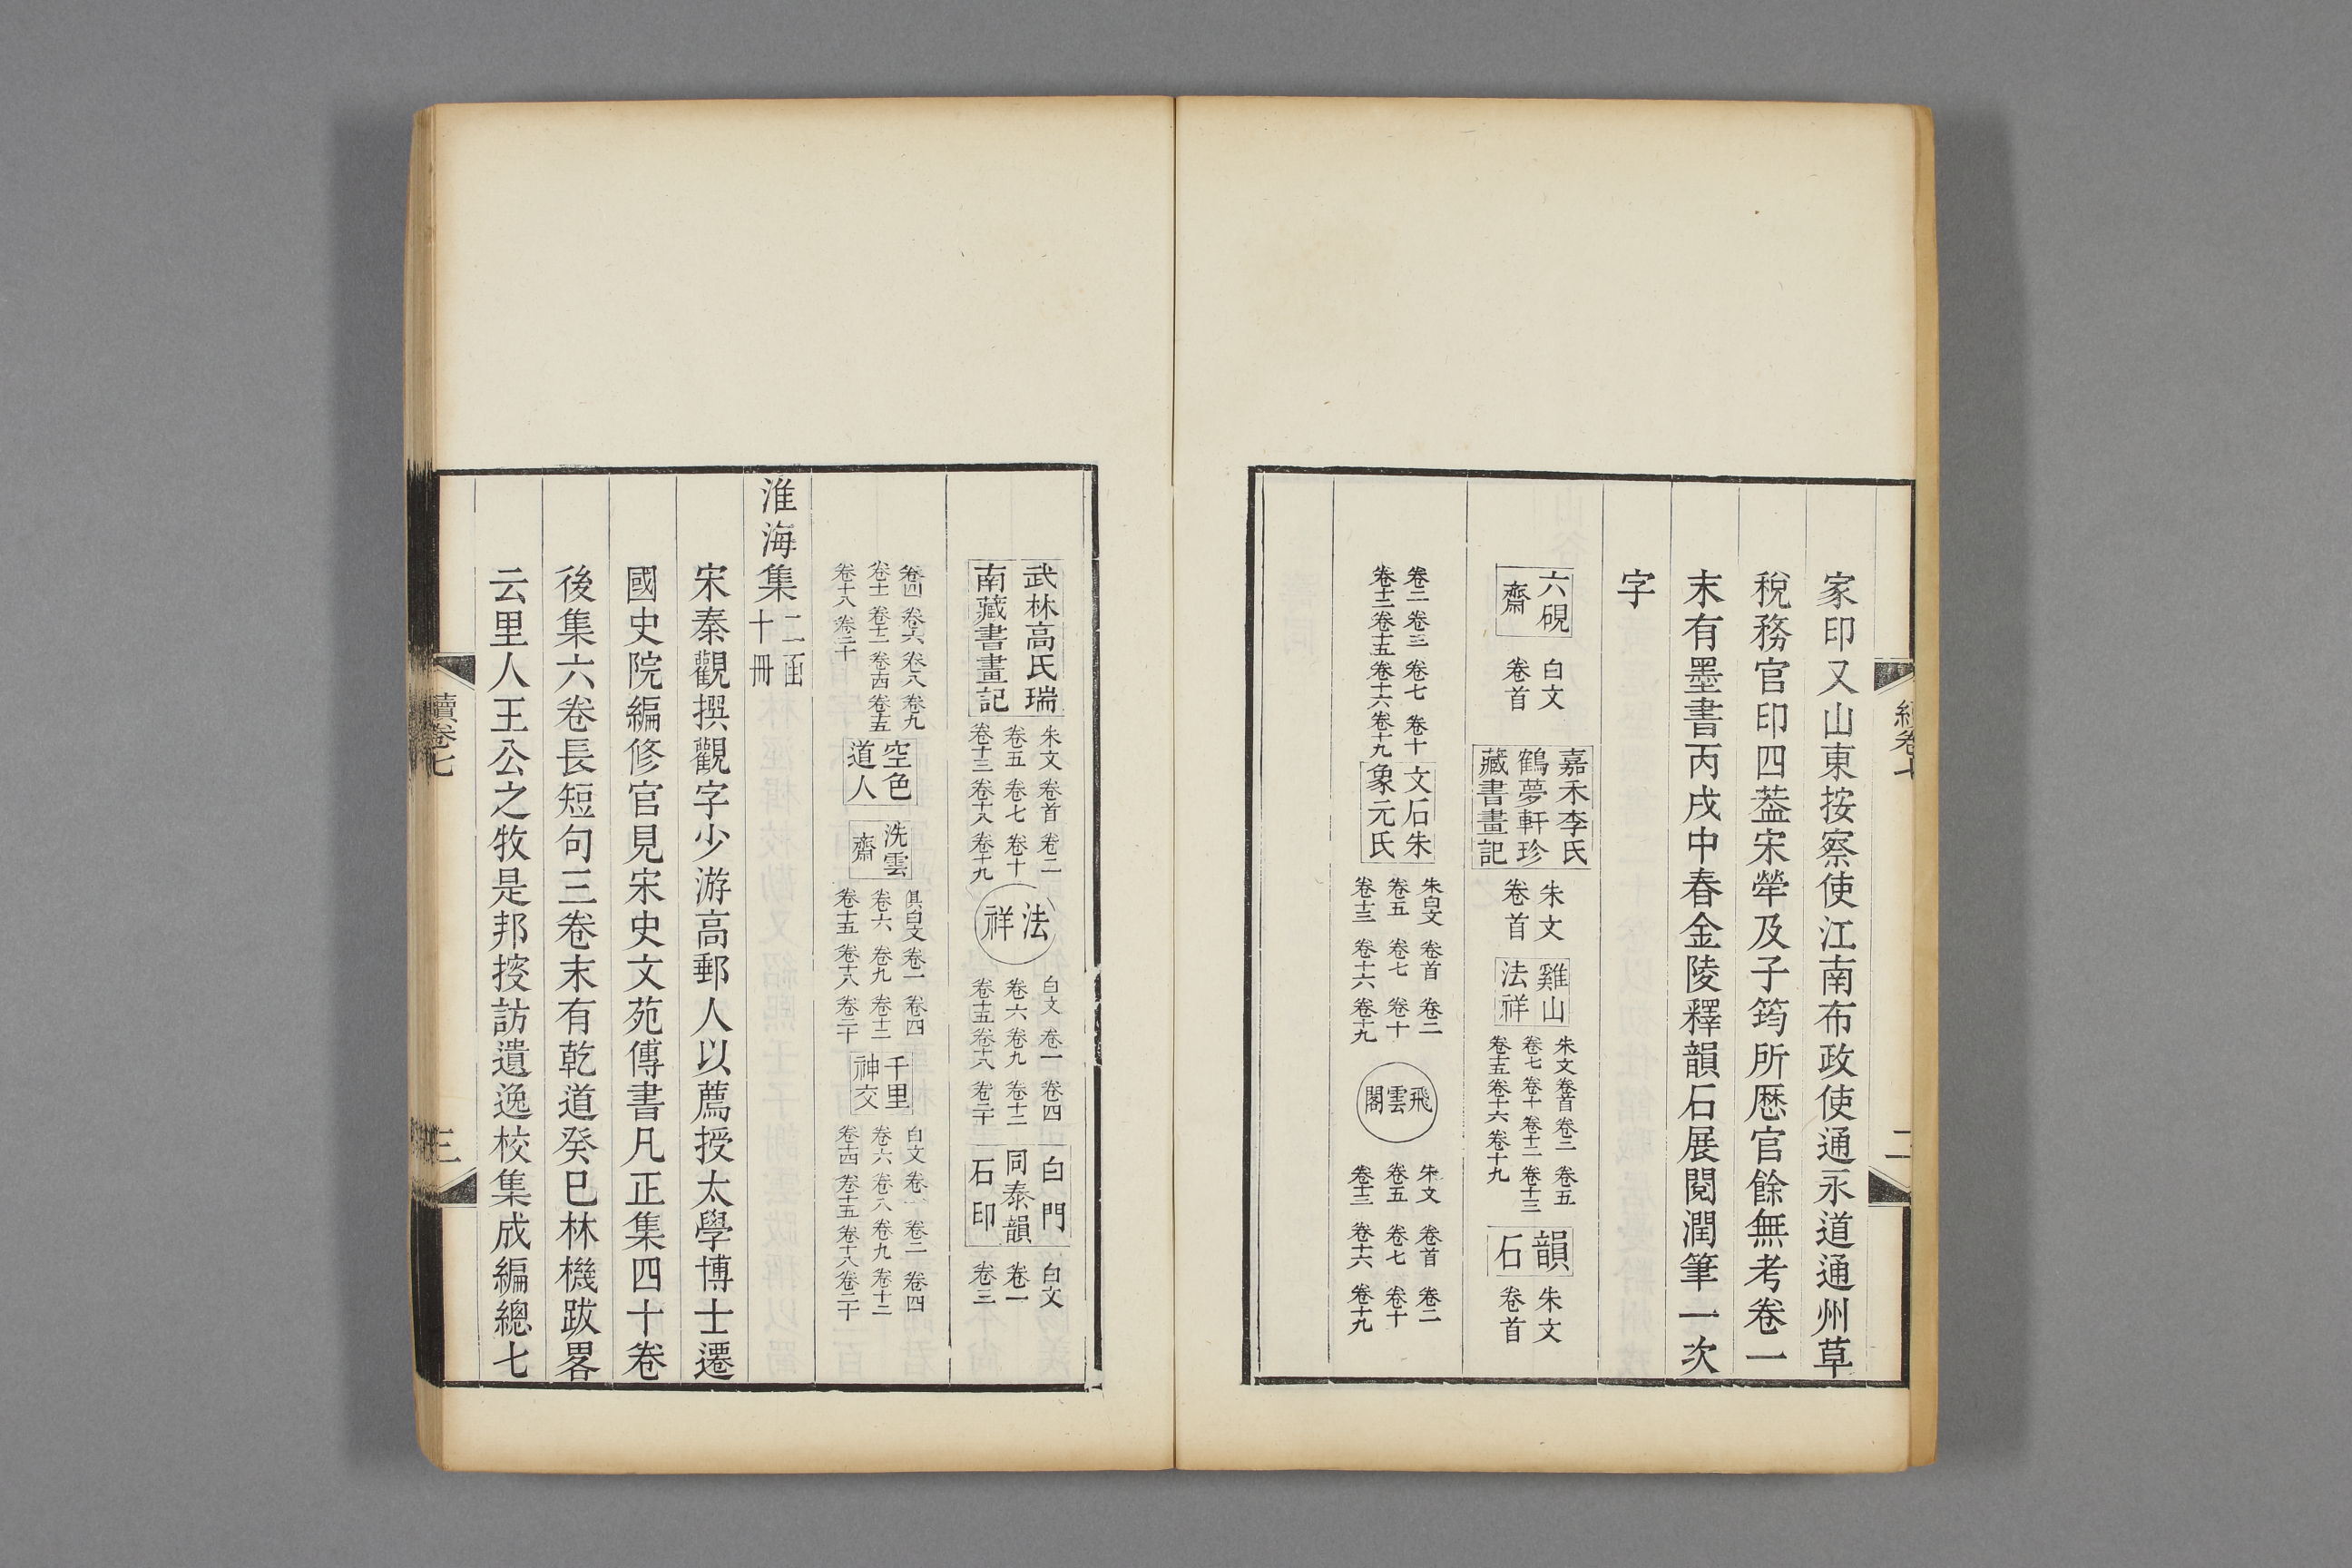 家印又山東按察使江南布政使通永道通州草
稅務官印四葢宋犖及子筠所歷官餘無考卷一
末有墨書丙戌中春金陵釋韻石展閱潤筆一次
字
六硯
齋
白文
卷首
嘉禾李氏
鶴夢軒珍
藏書畫記
朱文
卷首
雞山
法祥
朱文卷首卷二卷五
卷七卷十卷十二卷十三
卷十五卷十六卷十九
韻
石
朱文
卷首
卷二卷三卷七卷十
卷十二卷十五卷十六卷十九
文石朱
象元氏
朱白文卷首卷二
卷五卷七卷十
卷十三卷十六卷十九
飛雲閣
朱文卷首卷二
卷五卷七卷十
卷十三卷十六卷十九
武林高氏瑞
南藏書畫記
朱文卷首卷二
卷五卷七卷十
卷十三卷十八卷十九
法
祥
白文卷一卷四
卷六卷九卷十二
卷十五卷十八卷二十
白門
同泰韻
石印
白文
卷一
卷三
卷四卷六卷八卷九
卷十一卷十二卷十四卷十五
卷十八卷二十
空色
道人
洗雲
齋
俱白文卷一卷四
卷六卷九卷十二
卷十五卷十八卷二十
千里
神交
白文卷一卷二卷四
卷六卷八卷九卷十二
卷十四卷十五卷十八卷二十
淮海集二函
十冊
宋秦觀撰觀字少游高郵人以薦授太學博士遷
國史院編修官見宋史文苑傳書凡正集四十卷
後集六卷長短句三卷末有乾道癸巳林機跋畧
云里人王公之牧是邦搜訪遺逸校集成編總七
續卷七
三